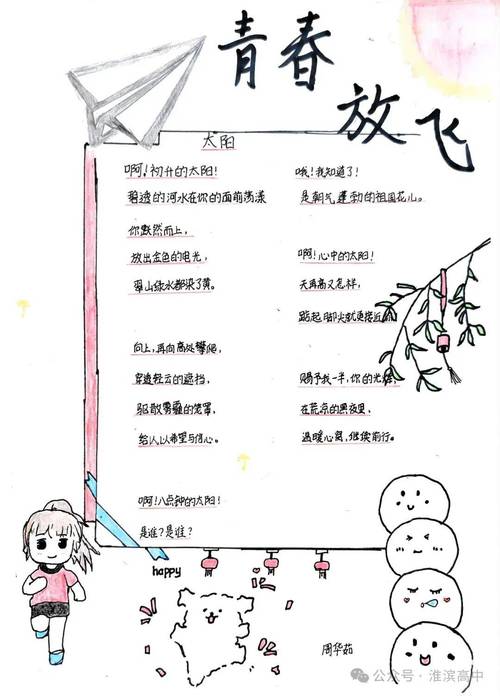 青春
放飞
太阳
啊!初升的太阳!
碧透的河水在你的面前荡漾
你默然而上,
放出金色的电光,
翠山绿水都染了黄。
向上,再向高处攀爬,
穿透轻云的遮挡,
驱散雾霾的笼罩,
给人以希望与信心。
啊!八点钟的太阳!
是谁?是谁?
哦!我知道了!
是朝气蓬勃的祖国花儿。
啊!心中的太阳!
天再高又怎样,
踮起脚尖就更接近你
赐予我一半,你的光活,
在荒凉的黑夜里,
温暖心窝,继续前行。
happy
周华茹
公众号·淮滨高中